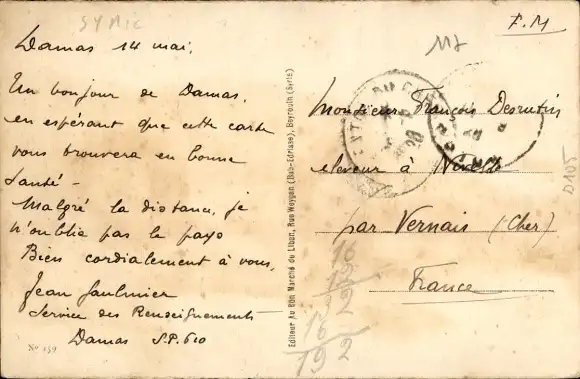 SYRIE
F.M
Damas 14 mai,
Un bonjour de Damas,
en espérant que cette carte
vous trouvera en bonne
santé -
Malgré la distance, je
n'oublie pas le pays
Bien cordialement à vous,
Jean Gaulmier
Service des Renseignements
Damas S.P. 610
No 159
Editeur Au Bon Marché du Liban, Rue Weygan (Bab-Edriase), Beyrouth (Syrie)
117
Monsieur François Desrutins
éleveur à
par Vernais (Cher)
France
D105
16
192